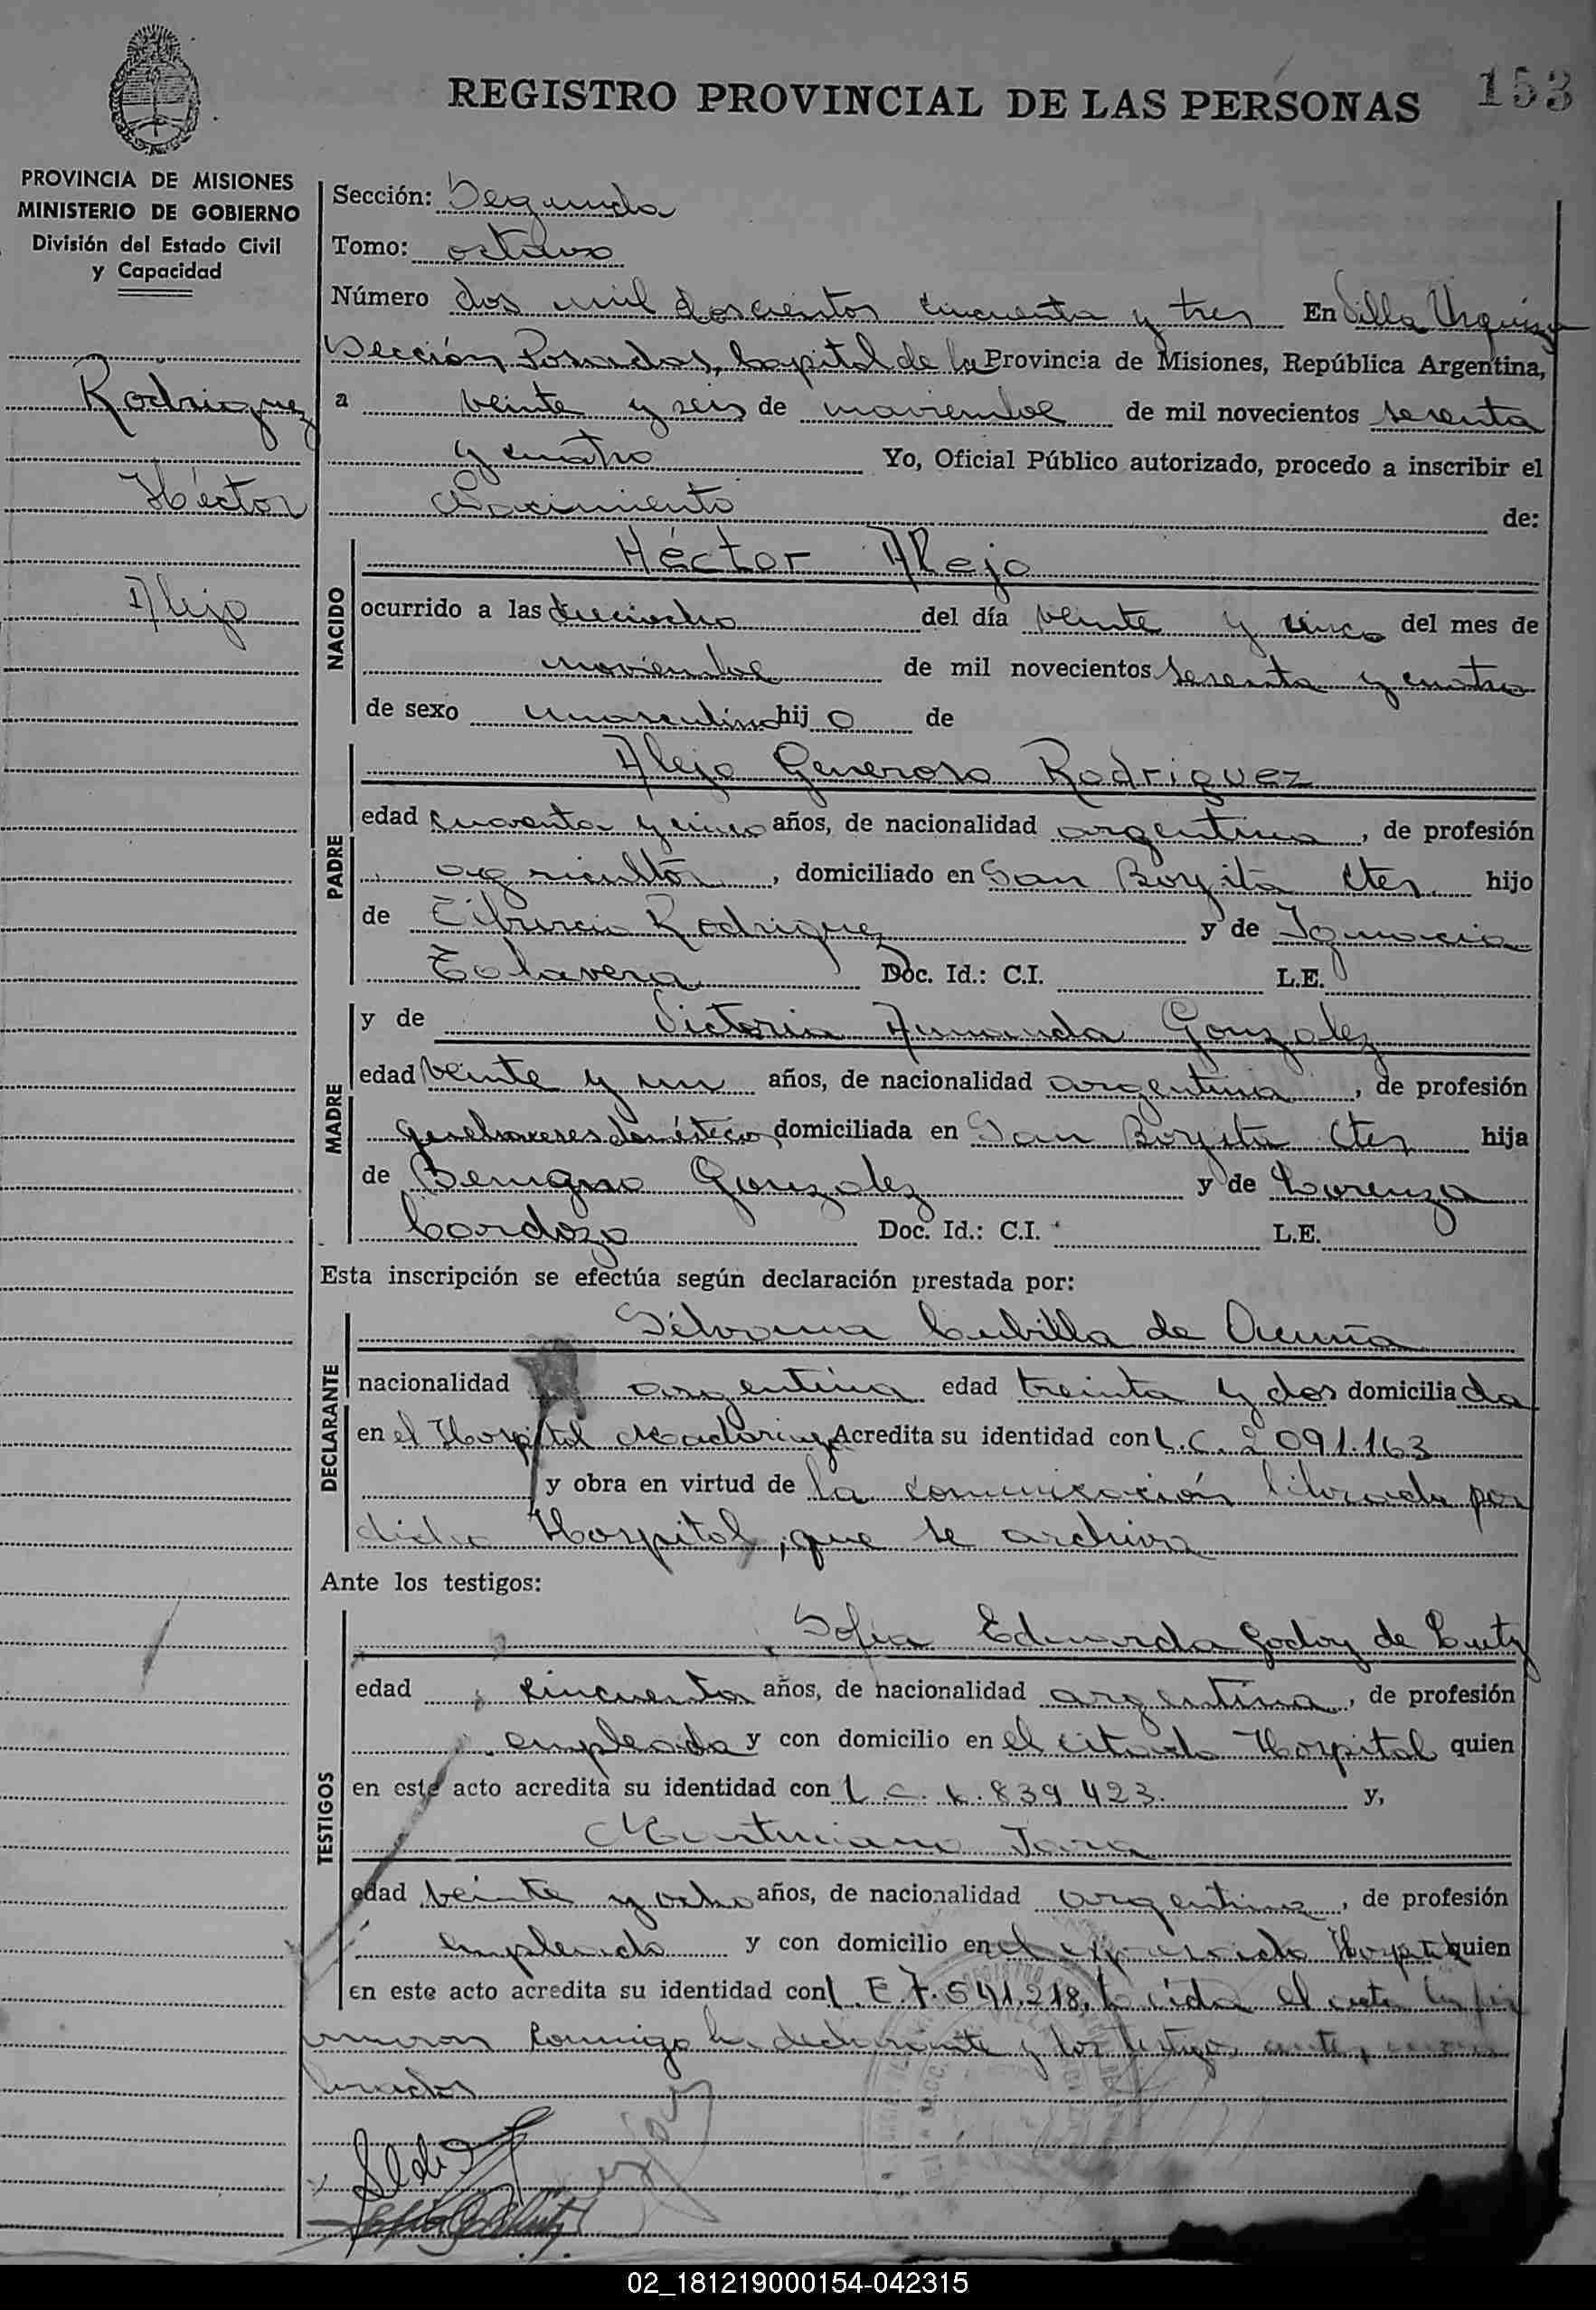 REGISTRO PROVINCIAL DE LAS PERSONAS 153
PROVINCIA DE MISIONES
MINISTERIO DE GOBIERNO
División del Estado Civil
y Capacidad
Rodriguez
Héctor
Alejo
Sección: Segunda
Tomo: octavo
Número dos mil doscientos cincuenta y tres En Villa Urquiza
Sección Posadas, Capital de la Provincia de Misiones, República Argentina,
a veinte y seis de noviembre de mil novecientos sesenta
y cuatro Yo, Oficial Público autorizado, procedo a inscribir el
Nacimiento de:
NACIDO
Héctor Alejo
ocurrido a las dieciocho del día veinte y cinco del mes de
noviembre de mil novecientos sesenta y cuatro
de sexo masculino hijo de
PADRE
Alejo Generoso Rodriguez
edad cuarenta y cinco años, de nacionalidad argentina, de profesión
agricultor, domiciliado en San Borjita Ctes. hijo
de Tiburcio Rodriguez y de Ignacia
Talavera Doc. Id.: C.I. L.E.
MADRE
y de Victoria Amanda Gonzalez
edad veinte y un años, de nacionalidad argentina, de profesión
quehaceres domésticos, domiciliada en San Borjita Ctes hija
de Benigno Gonzalez y de Lorenza
Cardozo Doc. Id.: C.I. L.E.
Esta inscripción se efectúa según declaración prestada por:
DECLARANTE
Silvana Cubilla de Acuña
nacionalidad argentina edad treinta y dos domiciliada
en el Hospital Madariaga Acredita su identidad con L.C. 2 091.163
y obra en virtud de la comunicación librada por
dicho Hospital, que se archiva
Ante los testigos:
TESTIGOS
Sofia Eduarda Godoy de
edad cincuenta años, de nacionalidad argentina, de profesión
empleada y con domicilio en el citado Hospital quien
en este acto acredita su identidad con L.C. 839 423. y,
Martiniano Jara
edad veinte y ocho años, de nacionalidad argentina, de profesión
empleado y con domicilio en el expresado Hospital quien
en este acto acredita su identidad con L.E 7.541.218. Leída el acta la fir
maron conmigo la declarante y los testigos ante
02_181219000154-042315